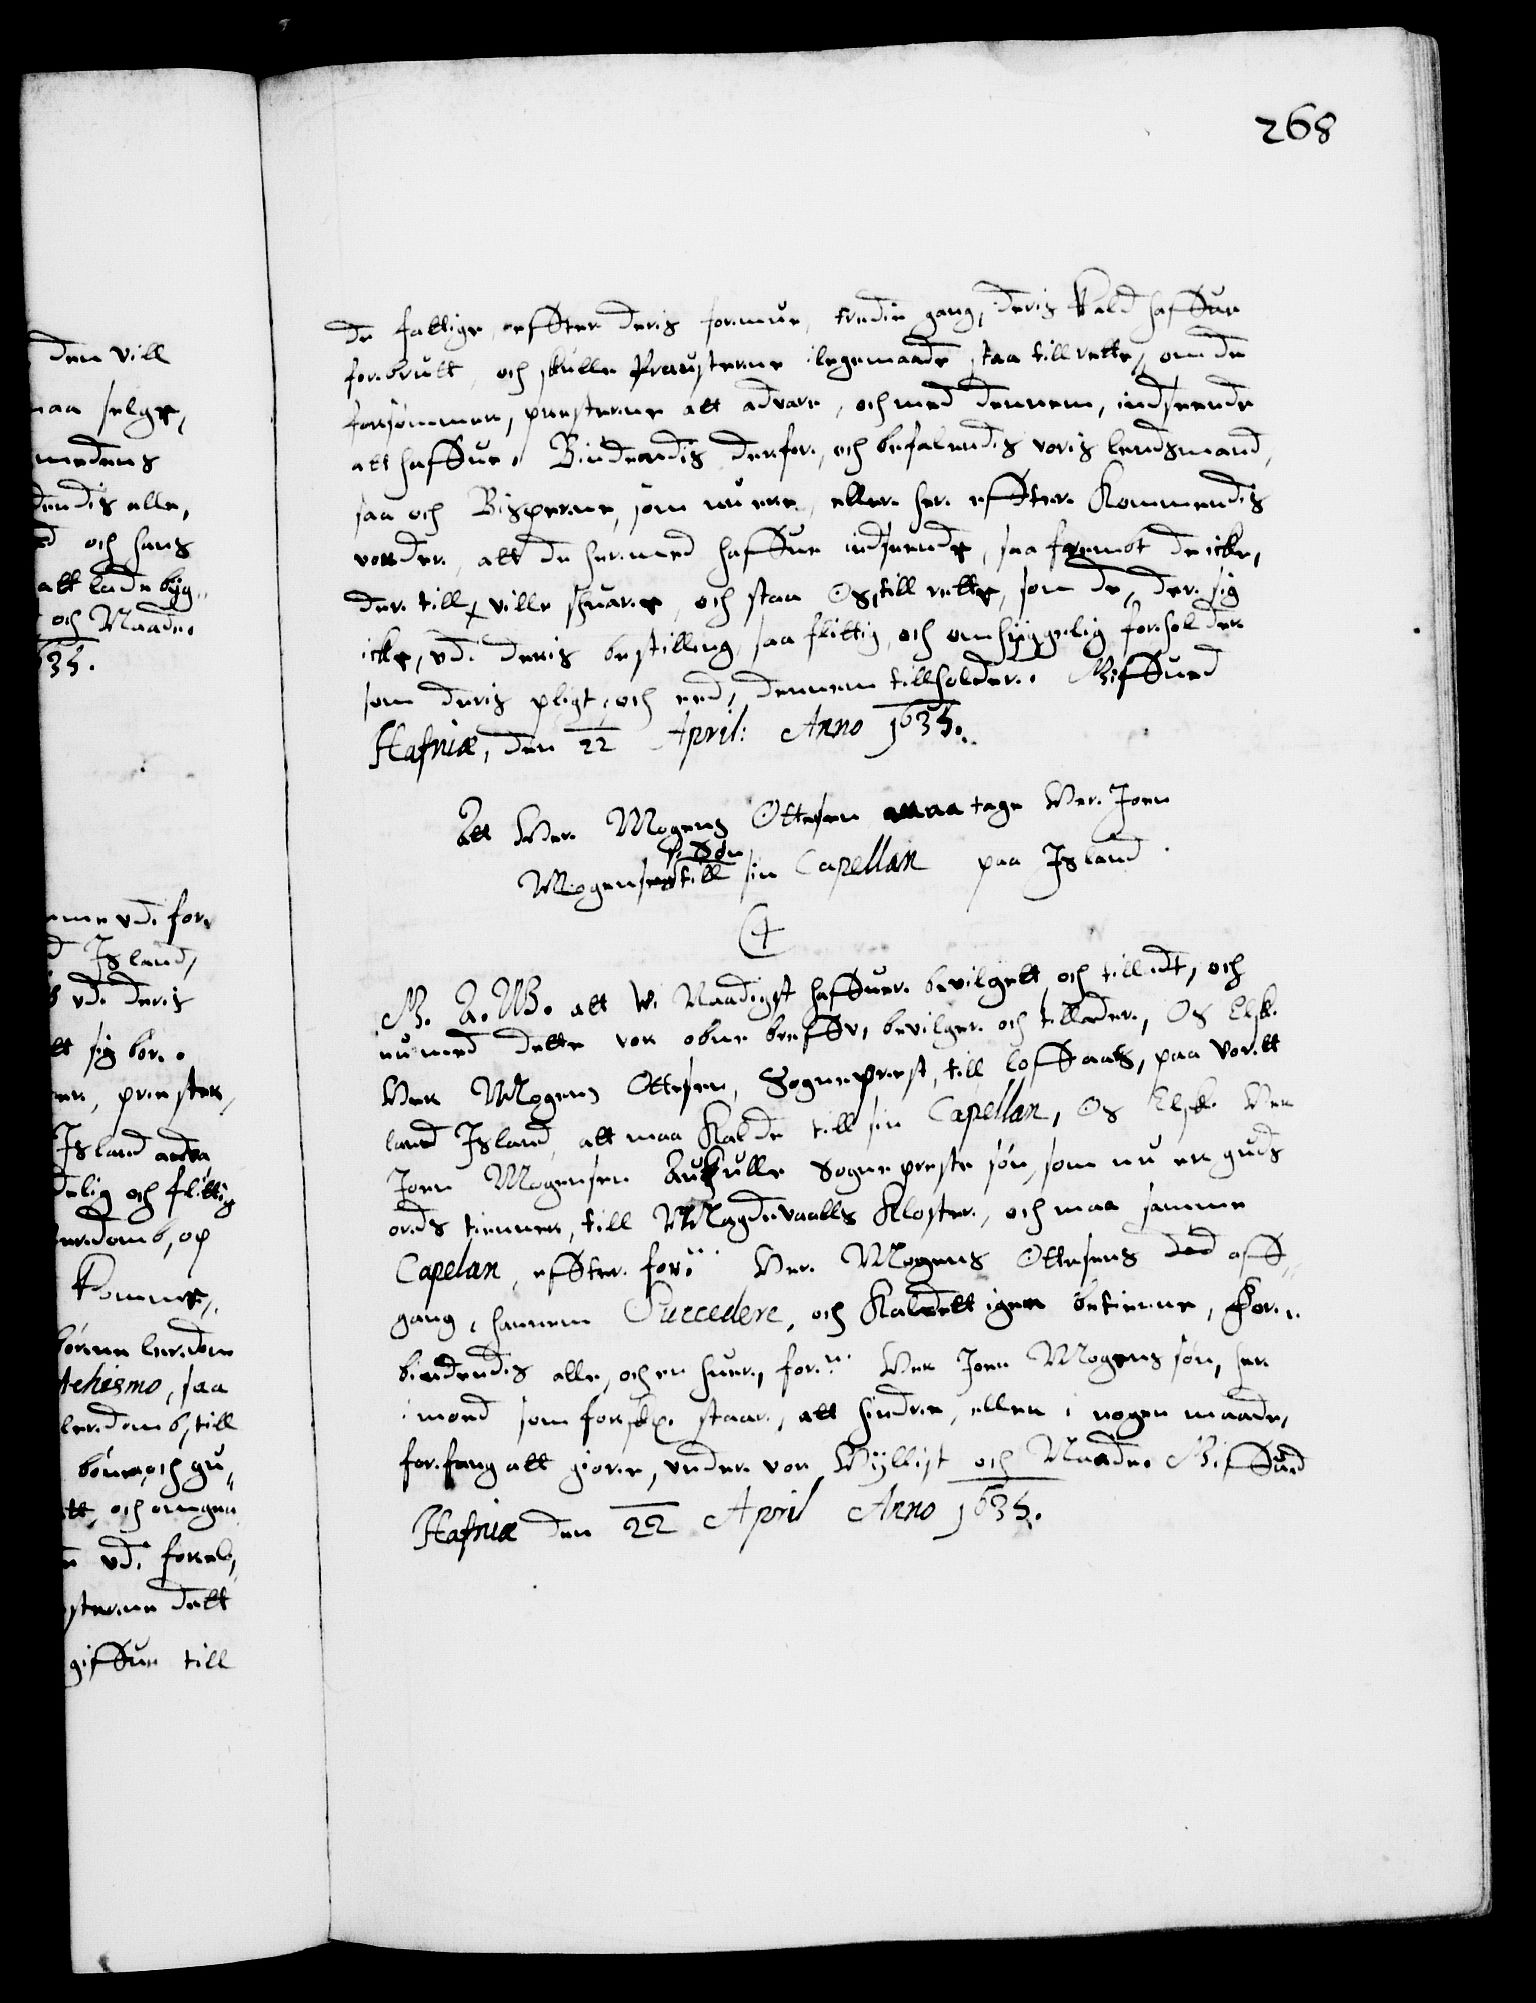 268
de fattige, effter deris formue, tredie gang, deris kald haffue
forbrutt, och skulle Prousterne i legemaade staa till rette, om de
forsømmer, presterne att advare, och med dennem, indseende
att haffue. Bindendis derfor, och befalendis voris lensmand,
saa och Bisperne, som nu ere, eller her effter kommendis
vorder, att de hermed haffue indseende, saa frembt de icke,
der till ville suare, och staa Os till rette, som de, der sig
icke, vdi deris bestilling saa flittig och omhyggelig forholder
som deris pligt, och eed, dennem tillholder. Giffued
Hafniæ, den 22 April: Anno 1635.
Att Her Mogens Ottesen maa tage Her Joen
Mogensen till sin Capellan paa Island
G. A. W. att Wi Naadigst haffuer bevilgett och tilladt, och
nu med dette vor obne breff, bevilger och tillader, Os Elsk.
Her Mogens Ottesen, Sogneprest, till loffaats, paa vor
land Island, att maa kalde till sin Capellan, Os Elsk. Her
Joen Mogensen Sogneprestesøn, som nu er guds
ords tienner, till Magdevaalls Kloster, och maa samme
Capelan, effter for: Her Mogens Ottesens død aff
gang, hannem Succedere, och Kaldett igen betienne, For
biudendis alle, och en huer, for: Her Joen Mogensøn, her
imoed som forsk. staar, att hindre, eller i nogen maade,
forfang att giøre, vnder vor Hyllist och Naade. Giffued
Hafniæ den 22 April Anno 1635.
den vill
maa selge,
medens
dendis alle,
och hans
att lade byg
och Naade.
635.
Island,
vdi deris
sig bør.
prester,
Island
delig och flittig
Komme,
lerdom
techismo, saa
lerdomb, till
bønner, och gu
och
vdi
sterne dett
giffuer till